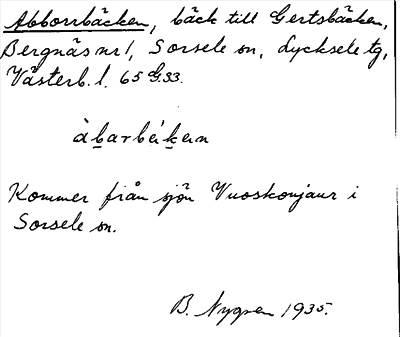 Abborrbäcken, bäck till Gertsbäcken,
Bergnäs nr 1, Sorsele sn, Lycksele tg,
Västerb. l. 65 G. 33.
àbarbéḱern
Kommer från sjön Vuoskonjaur i
Sorsele sn.
B. Nygren 1935.